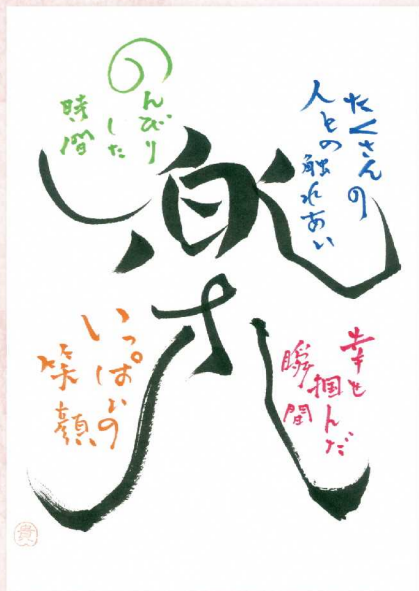 楽
たくさんの
人との触れあい
のんびり
した
時間
幸を
掴んだ
瞬間
いっぱいの
笑顔